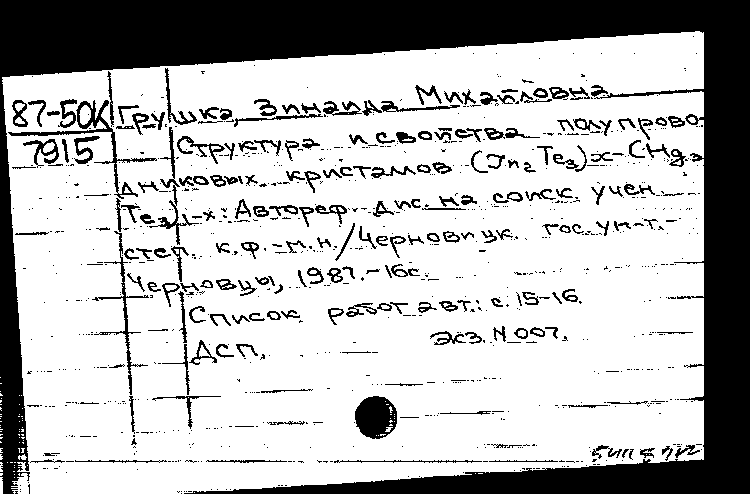 87-50К Грушка, Зинаида Михайловна
7915 Структура и свойства полупрово-
дниковых кристаллов (In₂Te₃)x-(Hg₃
Te₃)1-x: Автореф. дис. на соиск. учен.
степ. к.ф.-м.н./Черновицк. гос. ун-т.-
Черновцы, 1987.-16с.
Список работ авт.: с. 15-16.
ДСП. Экз. N 007.